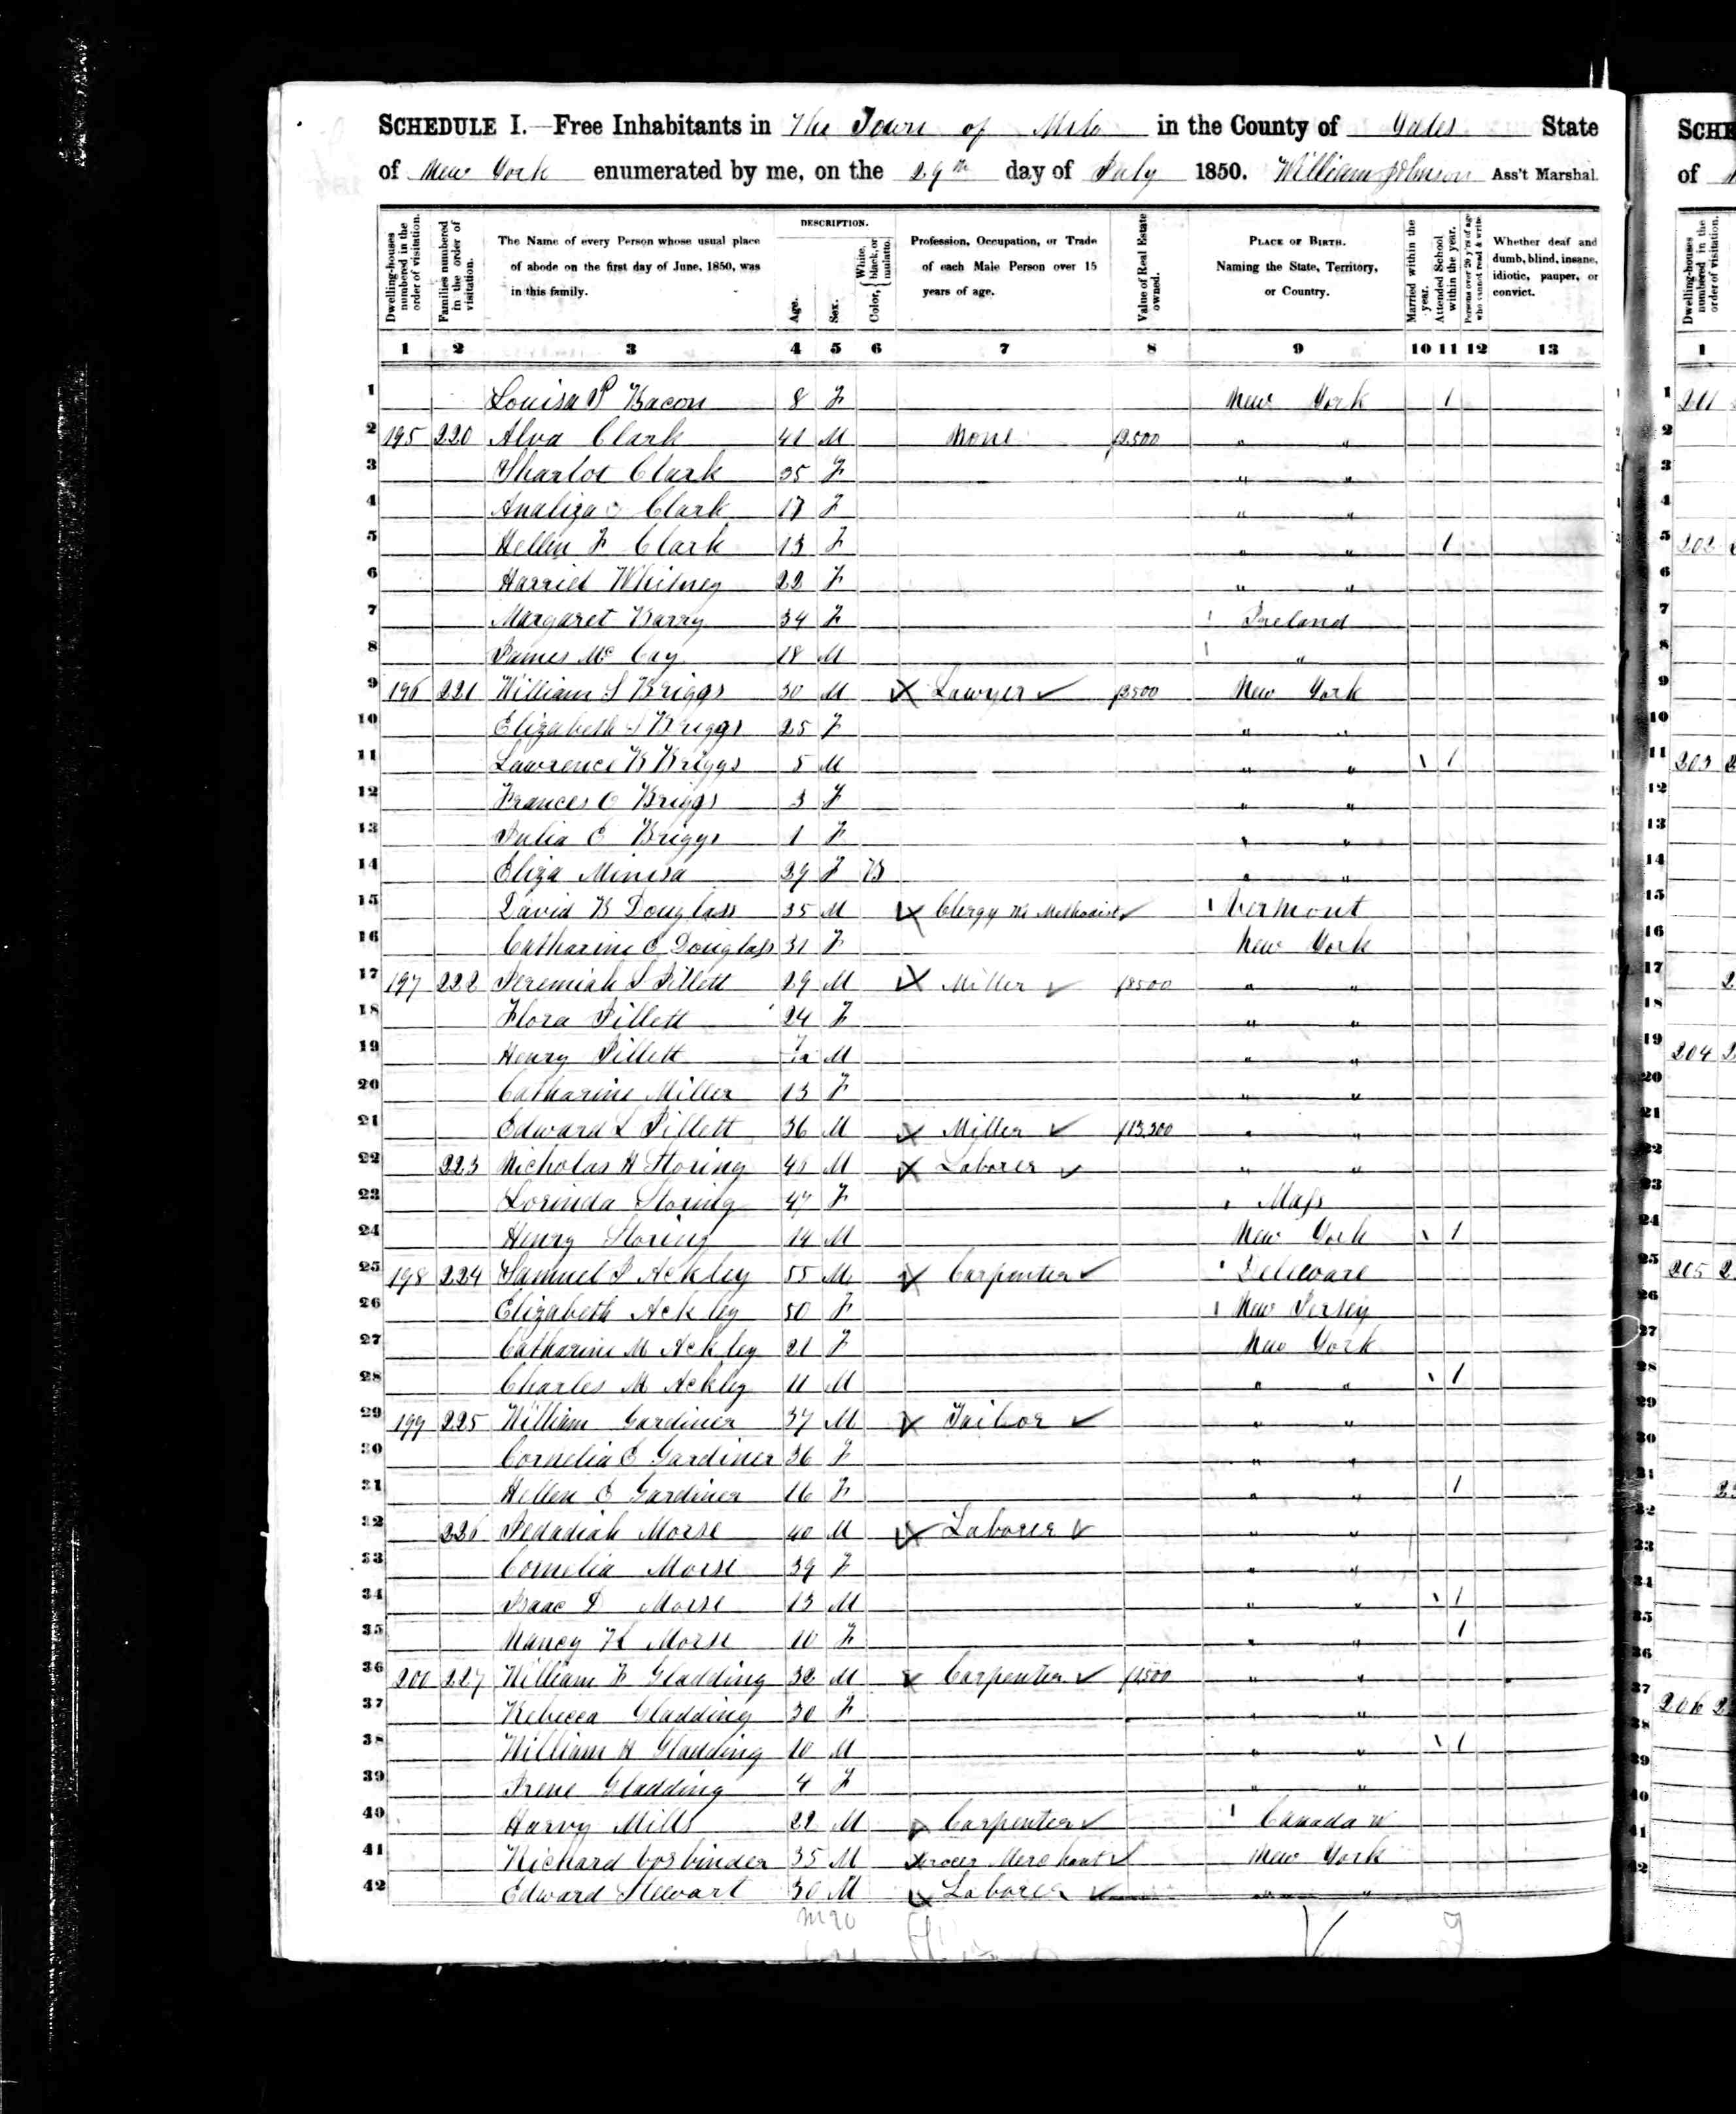 SCHEDULE I.—Free Inhabitants in The Town of Milo in the County of Yates State
of New York enumerated by me, on the 29th day of July 1850. William Johnson Ass't Marshal.
Dwelling-houses numbered in the order of visitation. Families numbered in the order of visitation. The Name of every Person whose usual place of abode on the first day of June, 1850, was in this family. DESCRIPTION. Age. Sex. Color, { White, black, or mulatto. Profession, Occupation, or Trade of each Male Person over 15 years of age. Value of Real Estate owned. PLACE OF BIRTH. Naming the State, Territory, or Country. Married within the year. Attended School within the year. Persons over 20 y'rs of age who cannot read & write. Whether deaf and dumb, blind, insane, idiotic, pauper, or convict.
1 2 3 4 5 6 7 8 9 10 11 12 13
1 Louisa P Bacon 8 F New York 1
2 195 220 Alva Clark 41 M None " "
3 Sharlot Clark 35 F " "
4 Analiza Clark 17 F " "
5 Hellen F Clark 13 F " " 1
6 Harriet Whitney 22 F " "
7 Margaret Barry 34 F Ireland
8 James Mc Cay 18 M "
9 196 221 William S Briggs 30 M Lawyer New York
10 Elizabeth S Briggs 25 F " "
11 Lawrence B Briggs 5 M " " 1
12 Frances C Briggs 3 F " "
13 Julia E Briggs 1 F " "
14 Eliza Minisa 29 F B " "
15 David B Douglass 35 M Clergy M Methodist Vermont
16 Catharine E Douglass 31 F New York
17 197 222 Jeremiah S Jillett 29 M Miller " "
18 Flora Jillett 24 F " "
19 Henry Jillett M " "
20 Catharine Miller 13 F " "
21 Edward L Jillett 36 M Miller " "
22 223 Nicholas H Storing M Laborer " "
23 Lorinda Storing 47 F Mass
24 Henry Storing 14 M New York 1
25 198 224 Samuel J Ackley 55 M Carpenter Deleware
26 Elizabeth Ackley 50 F New Jersey
27 Catharine M Ackley 21 F New York
28 Charles M Ackley 11 M " " 1
29 199 225 William Gardiner 37 M Tailor " "
30 Cornelia E Gardiner 36 F " "
31 Hellen E Gardiner 16 F " " 1
32 226 Jedadiah Morse 40 M Laborer " "
33 Cornelia Morse 39 F " "
34 Isaac D Morse 13 M " " 1
35 Nancy H Morse 10 F " " 1
36 200 227 William F Gladding 32 M Carpenter " "
37 Rebecca Gladding 30 F " "
38 William H Gladding 10 M " " 1
39 Irene Gladding 4 F " "
40 Harvy Mills 22 M Carpenter Canada W
41 Richard Cosbinder 35 M Grocer Merchant New York
42 Edward Stewart 30 M Laborer " "